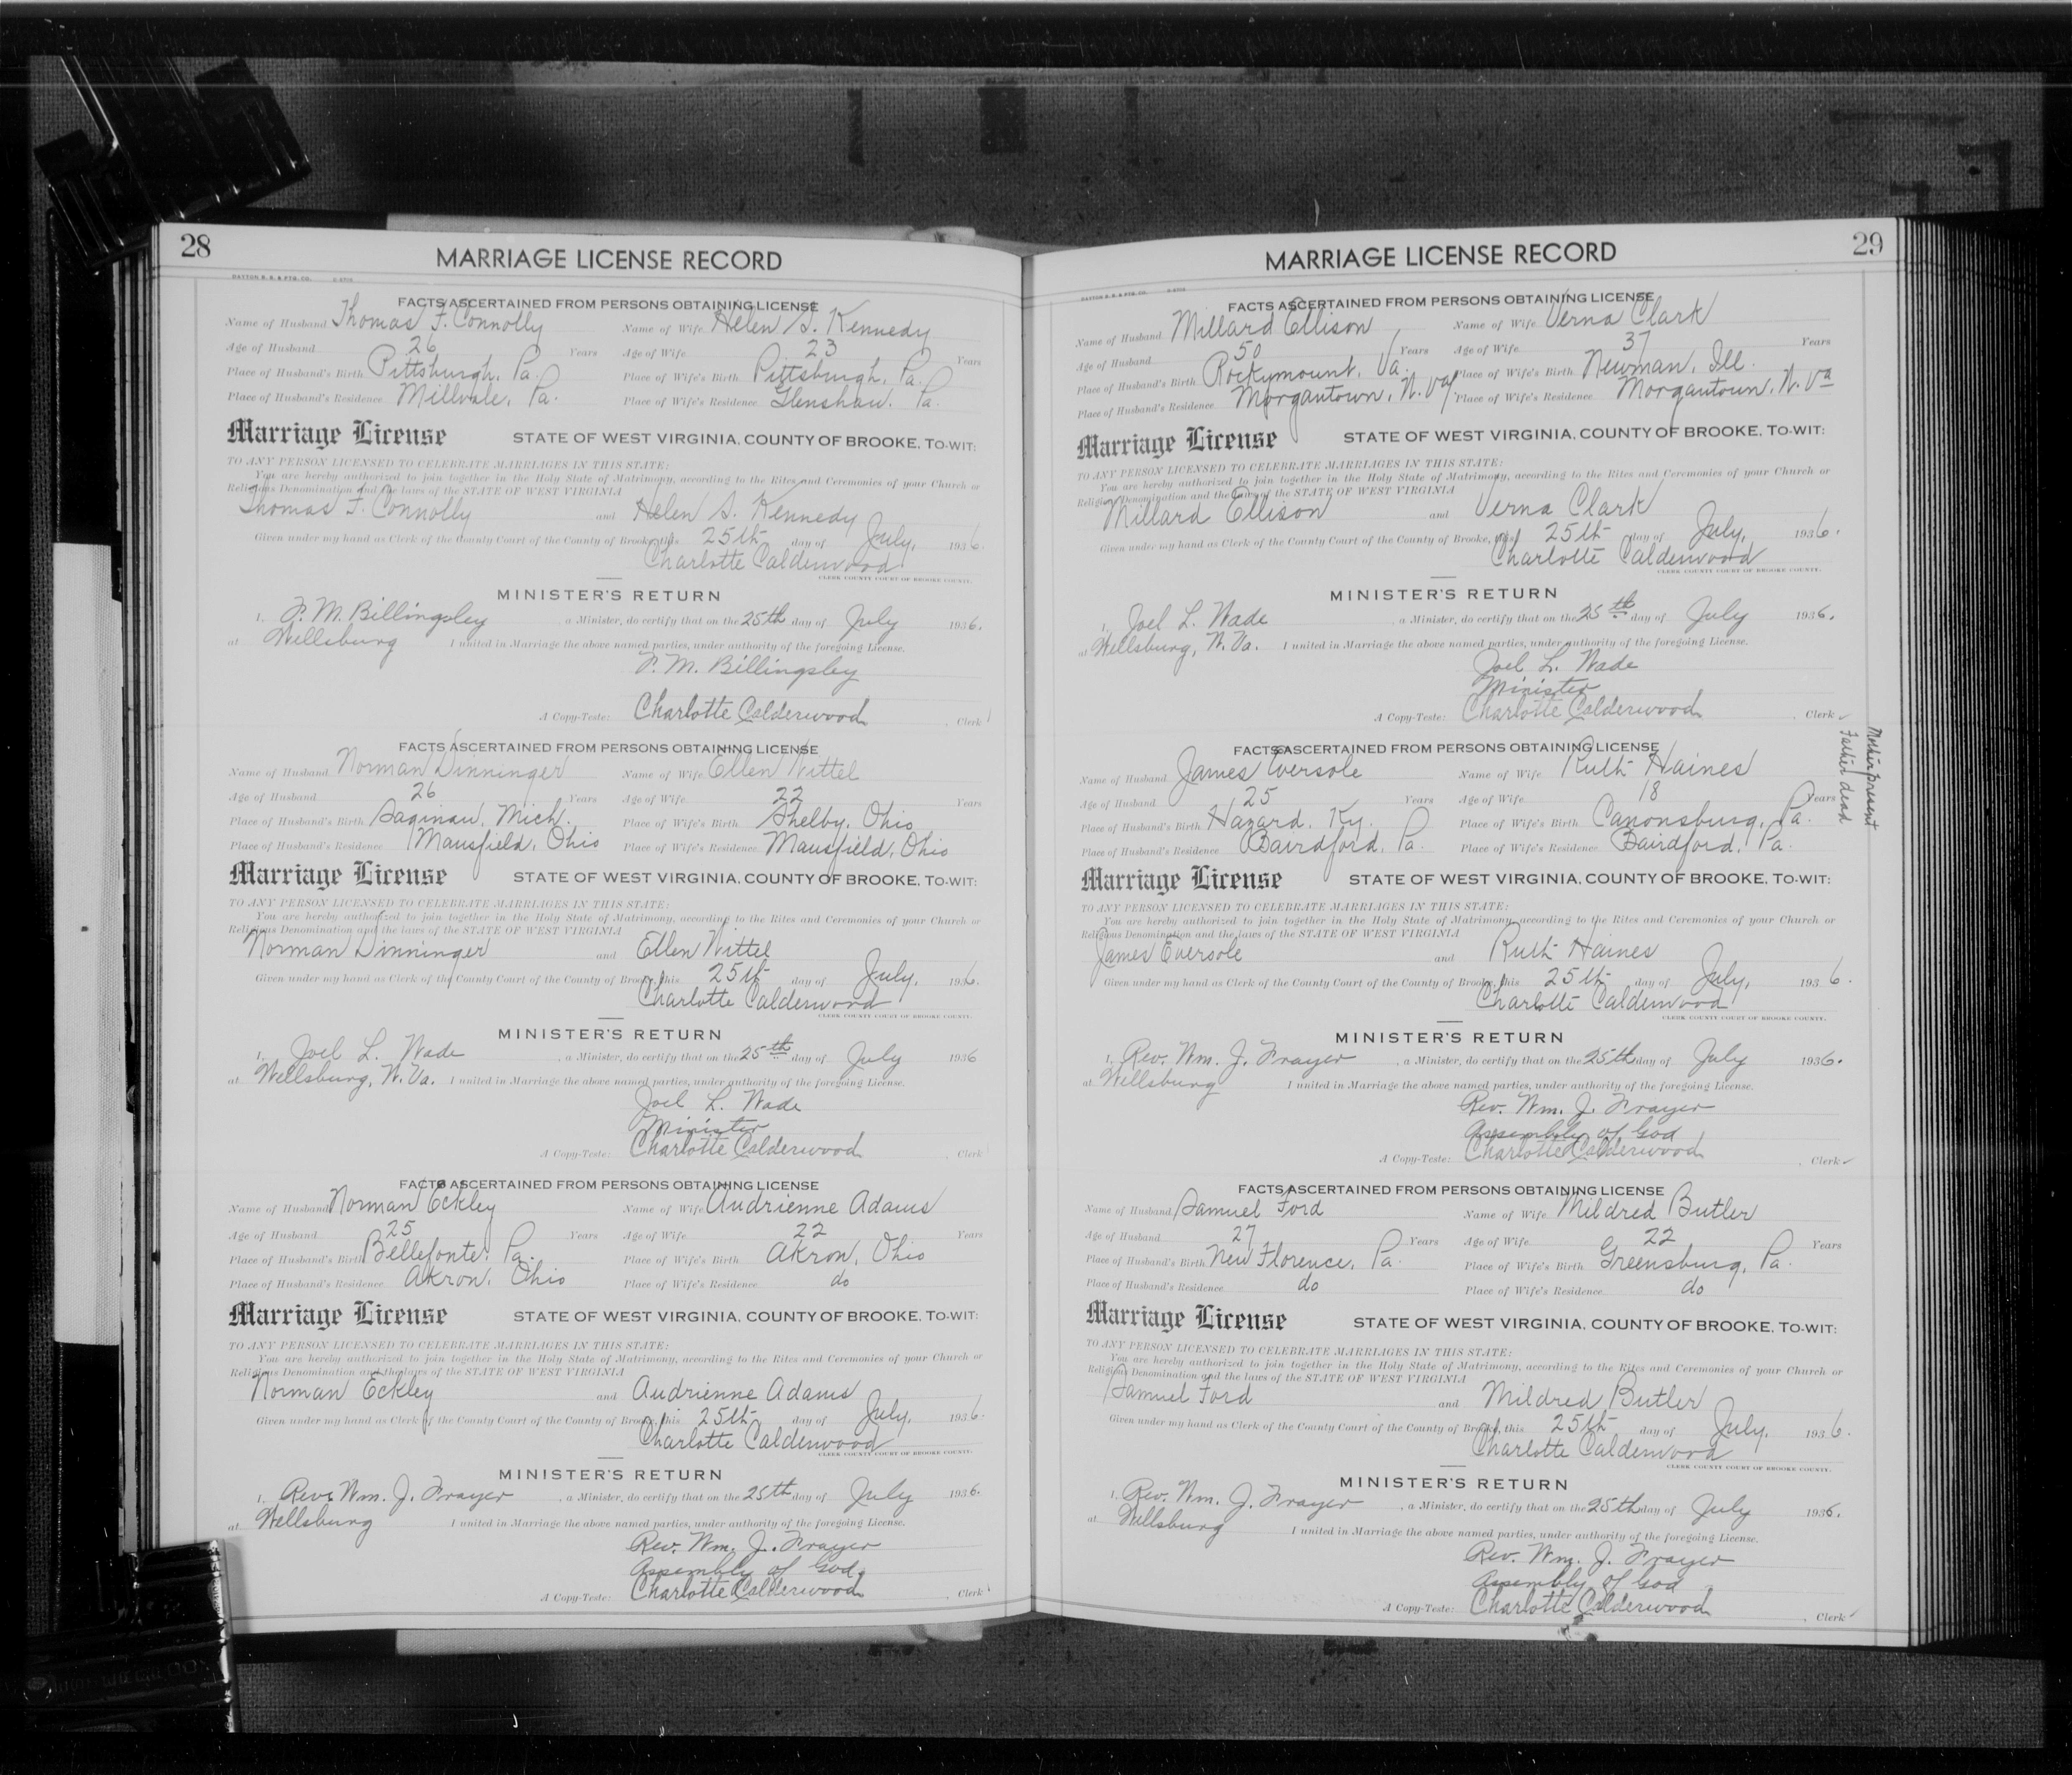 28
MARRIAGE LICENSE RECORD
FACTS ASCERTAINED FROM PERSONS OBTAINING LICENSE
Name of Husband Thomas F. Connolly Name of Wife Helen S. Kennedy
Age of Husband 26 Years Age of Wife 23 Years
Place of Husband's Birth Pittsburgh, Pa. Place of Wife's Birth Pittsburgh, Pa.
Place of Husband's Residence Millvale, Pa. Place of Wife's Residence Glenshaw, Pa.
Marriage License STATE OF WEST VIRGINIA, COUNTY OF BROOKE, TO-WIT:
TO ANY PERSON LICENSED TO CELEBRATE MARRIAGES IN THIS STATE:
You are hereby authorized to join together in the Holy State of Matrimony, according to the Rites and Ceremonies of your Church or
Religious Denomination and the laws of the STATE OF WEST VIRGINIA
Thomas F. Connolly and Helen S. Kennedy
Given under my hand as Clerk of the County Court of the County of Brooke, this 25th day of July, 1936.
Charlotte Calderwood
CLERK COUNTY COURT OF BROOKE COUNTY.
MINISTER'S RETURN
I, F. M. Billingsley, a Minister, do certify that on the 25th day of July 1936.
at Wellsburg I united in Marriage the above named parties, under authority of the foregoing License.
F. M. Billingsley
A Copy-Teste: Charlotte Calderwood, Clerk
FACTS ASCERTAINED FROM PERSONS OBTAINING LICENSE
Name of Husband Norman Dinninger Name of Wife Ellen Wittel
Age of Husband 26 Years Age of Wife 22 Years
Place of Husband's Birth Saginaw, Mich. Place of Wife's Birth Shelby, Ohio
Place of Husband's Residence Mansfield, Ohio Place of Wife's Residence Mansfield, Ohio
Marriage License STATE OF WEST VIRGINIA, COUNTY OF BROOKE, TO-WIT:
TO ANY PERSON LICENSED TO CELEBRATE MARRIAGES IN THIS STATE:
You are hereby authorized to join together in the Holy State of Matrimony, according to the Rites and Ceremonies of your Church or
Religious Denomination and the laws of the STATE OF WEST VIRGINIA
Norman Dinninger and Ellen Wittel
Given under my hand as Clerk of the County Court of the County of Brooke, this 25th day of July, 1936.
Charlotte Calderwood
CLERK COUNTY COURT OF BROOKE COUNTY.
MINISTER'S RETURN
I, Joel L. Wade, a Minister, do certify that on the 25th day of July 1936
at Wellsburg, W. Va. I united in Marriage the above named parties, under authority of the foregoing License.
Joel L. Wade
Minister
A Copy-Teste: Charlotte Calderwood, Clerk
FACTS ASCERTAINED FROM PERSONS OBTAINING LICENSE
Name of Husband Norman Eckley Name of Wife Audrienne Adams
Age of Husband 25 Years Age of Wife 22 Years
Place of Husband's Birth Bellefonte, Pa. Place of Wife's Birth Akron, Ohio
Place of Husband's Residence Akron, Ohio Place of Wife's Residence do
Marriage License STATE OF WEST VIRGINIA, COUNTY OF BROOKE, TO-WIT:
TO ANY PERSON LICENSED TO CELEBRATE MARRIAGES IN THIS STATE:
You are hereby authorized to join together in the Holy State of Matrimony, according to the Rites and Ceremonies of your Church or
Religious Denomination and the laws of the STATE OF WEST VIRGINIA
Norman Eckley and Audrienne Adams
Given under my hand as Clerk of the County Court of the County of Brooke, this 25th day of July, 1936.
Charlotte Calderwood
CLERK COUNTY COURT OF BROOKE COUNTY.
MINISTER'S RETURN
I, Rev. Wm. J. Frayer, a Minister, do certify that on the 25th day of July 1936.
at Wellsburg I united in Marriage the above named parties, under authority of the foregoing License.
Rev. Wm. J. Frayer
Assembly of God.
A Copy-Teste: Charlotte Calderwood, Clerk
29
MARRIAGE LICENSE RECORD
FACTS ASCERTAINED FROM PERSONS OBTAINING LICENSE
Name of Husband Millard Ellison Name of Wife Verna Clark
Age of Husband 50 Years Age of Wife 37 Years
Place of Husband's Birth Rockymount, Va. Place of Wife's Birth Newman, Ill.
Place of Husband's Residence Morgantown, W. Va. Place of Wife's Residence Morgantown, W. Va
Marriage License STATE OF WEST VIRGINIA, COUNTY OF BROOKE, TO-WIT:
TO ANY PERSON LICENSED TO CELEBRATE MARRIAGES IN THIS STATE:
You are hereby authorized to join together in the Holy State of Matrimony, according to the Rites and Ceremonies of your Church or
Religious Denomination and the laws of the STATE OF WEST VIRGINIA
Millard Ellison and Verna Clark
Given under my hand as Clerk of the County Court of the County of Brooke, this 25th day of July, 1936.
Charlotte Calderwood
CLERK COUNTY COURT OF BROOKE COUNTY.
MINISTER'S RETURN
I, Joel L. Wade, a Minister, do certify that on the 25th day of July 1936.
at Wellsburg, W. Va. I united in Marriage the above named parties, under authority of the foregoing License.
Joel L. Wade
Minister
A Copy-Teste: Charlotte Calderwood, Clerk
FACTS ASCERTAINED FROM PERSONS OBTAINING LICENSE
Name of Husband James Eversole Name of Wife Ruth Haines
Age of Husband 25 Years Age of Wife 18 Years
Place of Husband's Birth Hazard, Ky. Place of Wife's Birth Canonsburg, Pa.
Place of Husband's Residence Bairdford, Pa. Place of Wife's Residence Bairdford, Pa.
Mother present
Father dead
Marriage License STATE OF WEST VIRGINIA, COUNTY OF BROOKE, TO-WIT:
TO ANY PERSON LICENSED TO CELEBRATE MARRIAGES IN THIS STATE:
You are hereby authorized to join together in the Holy State of Matrimony, according to the Rites and Ceremonies of your Church or
Religious Denomination and the laws of the STATE OF WEST VIRGINIA
James Eversole and Ruth Haines
Given under my hand as Clerk of the County Court of the County of Brooke, this 25th day of July, 1936.
Charlotte Calderwood
CLERK COUNTY COURT OF BROOKE COUNTY.
MINISTER'S RETURN
I, Rev. Wm. J. Frayer, a Minister, do certify that on the 25th day of July 1936.
at Wellsburg I united in Marriage the above named parties, under authority of the foregoing License.
Rev. Wm. J. Frayer
Assembly of God
A Copy-Teste: Charlotte Calderwood, Clerk
FACTS ASCERTAINED FROM PERSONS OBTAINING LICENSE
Name of Husband Samuel Ford Name of Wife Mildred Butler
Age of Husband 27 Years Age of Wife 22 Years
Place of Husband's Birth New Florence, Pa. Place of Wife's Birth Greensburg, Pa.
Place of Husband's Residence do Place of Wife's Residence do
Marriage License STATE OF WEST VIRGINIA, COUNTY OF BROOKE, TO-WIT:
TO ANY PERSON LICENSED TO CELEBRATE MARRIAGES IN THIS STATE:
You are hereby authorized to join together in the Holy State of Matrimony, according to the Rites and Ceremonies of your Church or
Religious Denomination and the laws of the STATE OF WEST VIRGINIA
Samuel Ford and Mildred Butler
Given under my hand as Clerk of the County Court of the County of Brooke, this 25th day of July, 1936.
Charlotte Calderwood
CLERK COUNTY COURT OF BROOKE COUNTY.
MINISTER'S RETURN
I, Rev. Wm. J. Frayer, a Minister, do certify that on the 25th day of July 1936.
at Wellsburg I united in Marriage the above named parties, under authority of the foregoing License.
Rev. Wm. J. Frayer
Assembly of God
A Copy-Teste: Charlotte Calderwood, Clerk